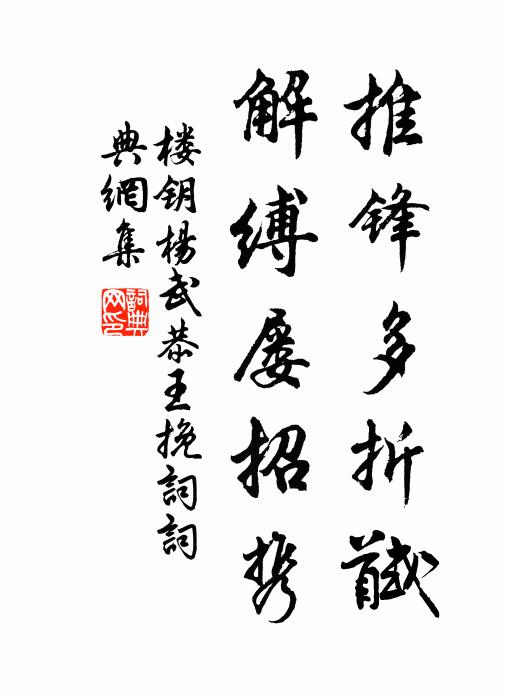 推锋多折馘
解缚屡招携
楼钥杨武恭王挽词詞
典網集
詞典
网印